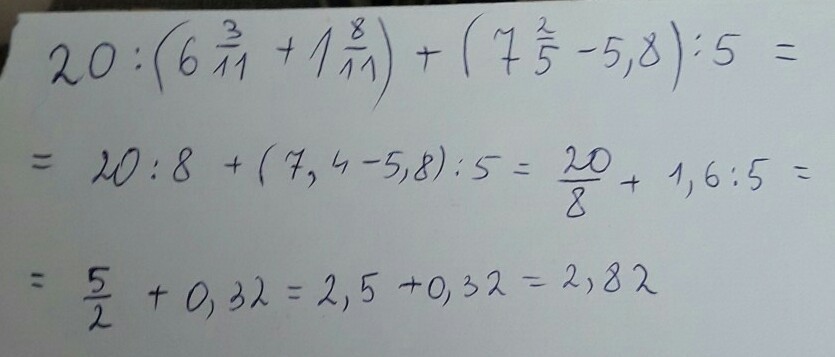 20 : (6 3/11 + 1 8/11) + (7 2/5 - 5,8) : 5 =
= 20 : 8 + (7,4 - 5,8) : 5 = 20/8 + 1,6 : 5 =
= 5/2 + 0,32 = 2,5 + 0,32 = 2,82